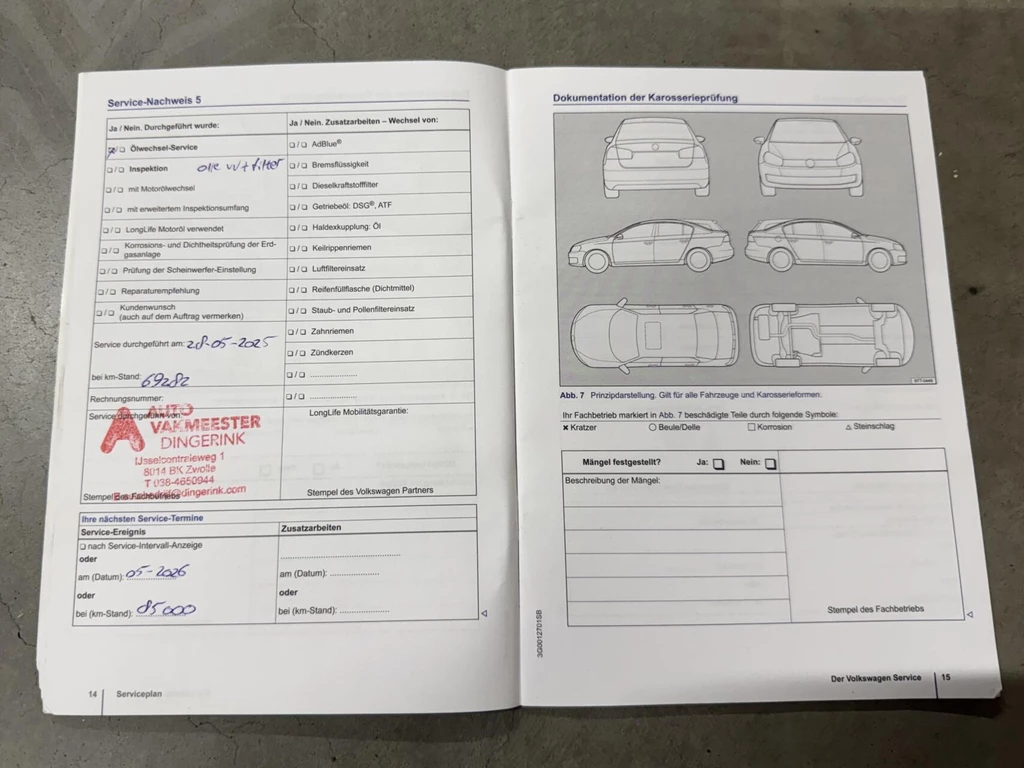 Service-Nachweis 5
Ja / Nein. Durchgeführt wurde:
☒/❑ Ölwechsel-Service
❑/❑ Inspektion olie vv + filter
❑/❑ mit Motorölwechsel
❑/❑ mit erweitertem Inspektionsumfang
❑/❑ LongLife Motoröl verwendet
❑/❑ Korrosions- und Dichtheitsprüfung der Erd-
gasanlage
❑/❑ Prüfung der Scheinwerfer-Einstellung
❑/❑ Reparaturempfehlung
❑/❑ Kundenwunsch
(auch auf dem Auftrag vermerken)
Service durchgeführt am: 28-05-2025
bei km-Stand: 69282
Rechnungsnummer:
Service durchgeführt von:
AUTO
VAKMEESTER
DINGERINK
IJsselcentraleweg 1
8014 BK Zwolle
T 038-4650944
dingerink.com
Stempel des Fachbetriebs
Ja / Nein. Zusatzarbeiten – Wechsel von:
❑/❑ AdBlue®
❑/❑ Bremsflüssigkeit
❑/❑ Dieselkraftstofffilter
❑/❑ Getriebeöl: DSG®, ATF
❑/❑ Haldexkupplung: Öl
❑/❑ Keilrippenriemen
❑/❑ Luftfiltereinsatz
❑/❑ Reifenfüllflasche (Dichtmittel)
❑/❑ Staub- und Pollenfiltereinsatz
❑/❑ Zahnriemen
❑/❑ Zündkerzen
❑/❑ ....................
❑/❑ ....................
LongLife Mobilitätsgarantie:
Stempel des Volkswagen Partners
Ihre nächsten Service-Termine
Service-Ereignis
❑ nach Service-Intervall-Anzeige
oder
am (Datum): 05-2026
oder
bei (km-Stand): 85000
Zusatzarbeiten
am (Datum): ....................
oder
bei (km-Stand): ....................
14 Serviceplan
Dokumentation der Karosserieprüfung
Abb. 7 Prinzipdarstellung. Gilt für alle Fahrzeuge und Karosserieformen.
Ihr Fachbetrieb markiert in Abb. 7 beschädigte Teile durch folgende Symbole:
✖ Kratzer ○ Beule/Delle □ Korrosion △ Steinschlag
Mängel festgestellt? Ja: ❑ Nein: ❑
Beschreibung der Mängel:
Stempel des Fachbetriebs
3G0012701SB
Der Volkswagen Service 15